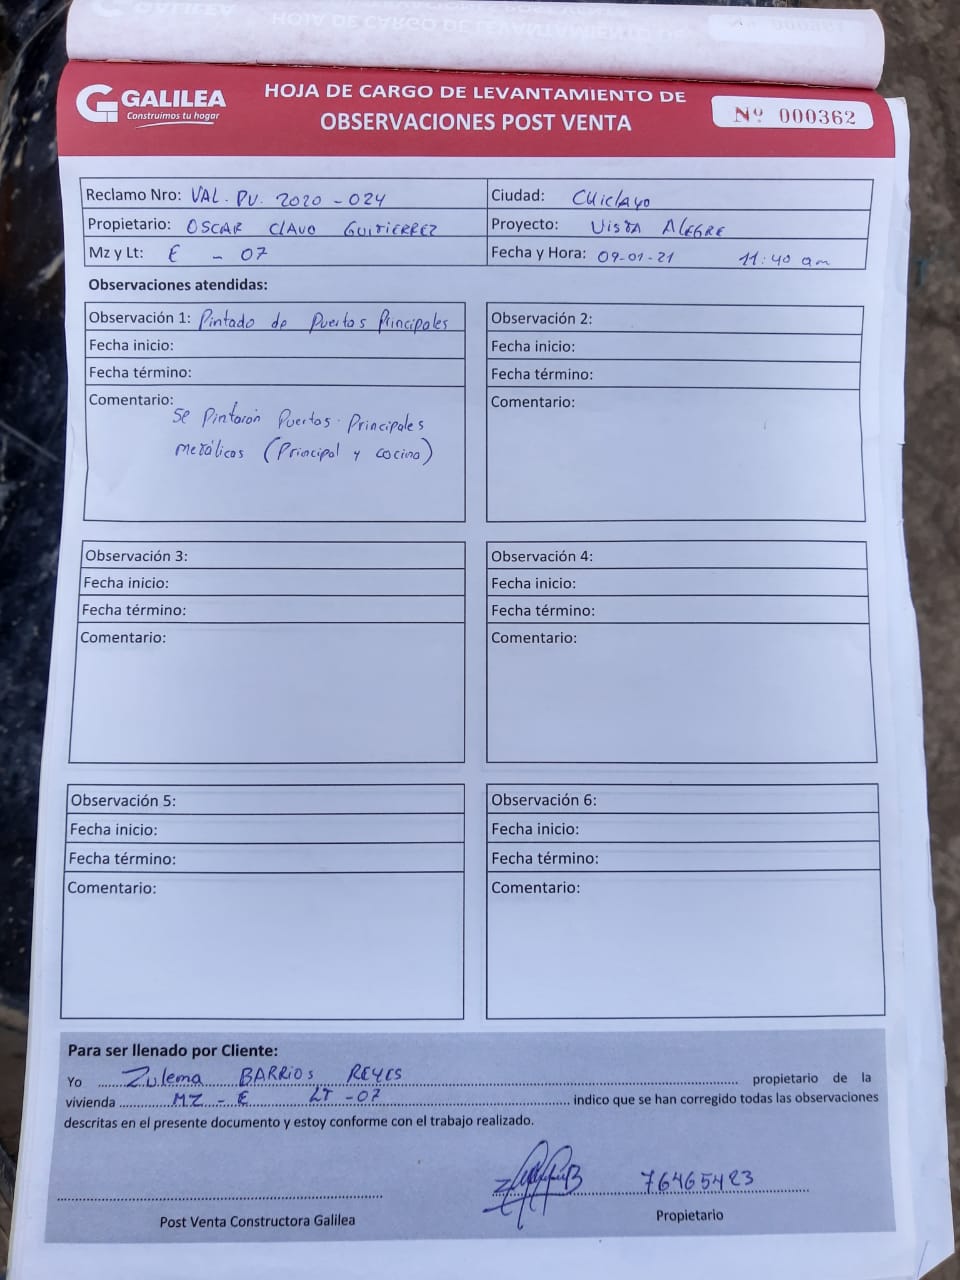 GALILEA
Construimos tu hogar
HOJA DE CARGO DE LEVANTAMIENTO DE
OBSERVACIONES POST VENTA
Nº 000362
Reclamo Nro: VAL. PV. 2020 - 024
Ciudad: CHiclayo
Propietario: OSCAR CLAVO GUITIERREZ
Proyecto: VISTA ALEGRE
Mz y Lt: E - 07
Fecha y Hora: 09-01-21 11:40 am
Observaciones atendidas:
Observación 1: Pintado de Puertas Principales
Fecha inicio:
Fecha término:
Comentario: Se Pintaron Puertas Principales
metálicas (Principal y cocina)
Observación 2:
Fecha inicio:
Fecha término:
Comentario:
Observación 3:
Fecha inicio:
Fecha término:
Comentario:
Observación 4:
Fecha inicio:
Fecha término:
Comentario:
Observación 5:
Fecha inicio:
Fecha término:
Comentario:
Observación 6:
Fecha inicio:
Fecha término:
Comentario:
Para ser llenado por Cliente:
Yo Zulema BARRIOS REYES propietario de la
vivienda MZ - E LT - 07 indico que se han corregido todas las observaciones
descritas en el presente documento y estoy conforme con el trabajo realizado.
76465423
Post Venta Constructora Galilea
Propietario